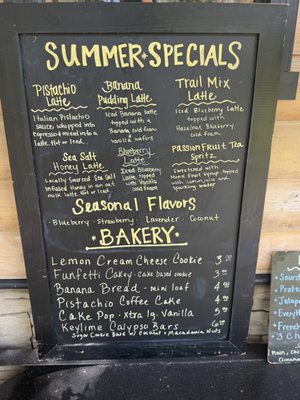 SUMMER SPECIALS
Pistachio
Latte
Italian Pistachio
sauce whipped into
espresso & mixed into a
latte. Hot or Iced
Banana
Pudding Latte
Iced Banana latte
topped with a
Banana cold foam
vanilla wafers
Trail Mix
Latte
Iced Blueberry Latte
topped with
Hazelnut Blueberry
cold foam
Sea Salt
Honey Latte
Locally Sourced Sea Salt
infused Honey in an oat
milk latte. Hot or Iced
Blueberry
Latte
Iced Blueberry
Latte topped
with Vanilla
cold foam
Passion Fruit Tea
Spritz
Sweetened with
Monk Fruit syrup, topped
with
sparkling water
Seasonal Flavors
Blueberry - Strawberry - Lavender - Coconut
BAKERY
Lemon Cream Cheese Cookie 3
Funfetti Cakey - Cake based cookie 3
Banana Bread - mini loaf 4
Pistachio Coffee Cake 4
Cake Pop - Xtra lg. Vanilla 5
Keylime Calypso Bars 6
Sugar Cookie Base w/ Coconut & Macadamia Nuts
Sourd
Prote
Jalape
Every
French
3 Ch
Main, Chi
Cinnamo